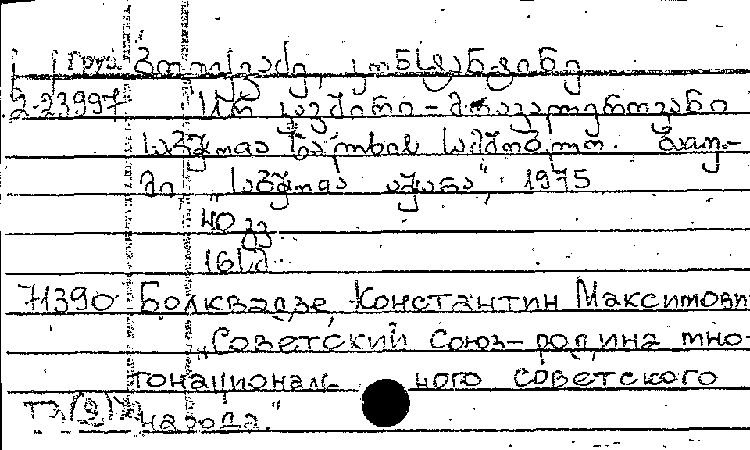 ბოლქვაძე, კონსტანტინე
2-23997 სსრ კავშირი - მრავალეროვანი
საბჭოთა ხალხის სამშობლო. ბათუ-
მი, „საბჭოთა აჭარა", 1975
40 გვ.
16 სმ.
71390 Болквадзе, Константин Максимови
„Советский Союз- родина мно-
гонациональ ного советского
народа."